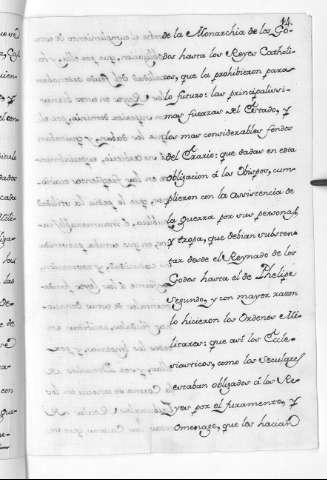 14.
de la Monarchia de los Go-
dos hasta los Reyes Catholi-
cos, que la prohibieron para
lo futuro: las principalissi-
mas fuerzas del Estado, y
los mas considerables fondos
del Erario: que dadas en esta
obligacion á los Obispos, cum-
plieron con la assistencia de
la guerra por sus personas,
y tropas, que debian substen-
tar desde el Reynado de los
Godos hasta el de Phelipe
Segundo, y con mayor razon
lo hicieron los Ordenes Mi-
litares: que assi los Eccle-
siasticos, como los Seculares
estaban obligados á los Re-
yes por el juramento, y
omenage, que les hacian